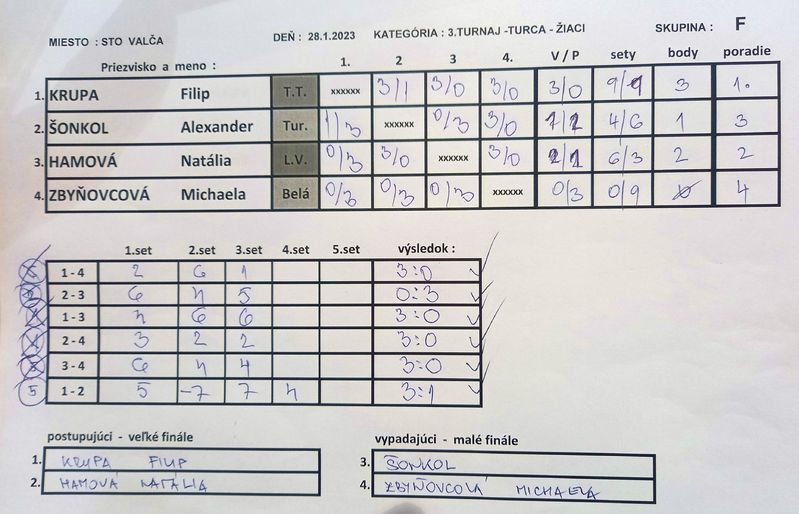 MIESTO : STO VALČA DEŇ : 28.1.2023 KATEGÓRIA : 3.TURNAJ -TURCA - ŽIACI SKUPINA : F
Priezvisko a meno : 1. 2 3 4. V / P sety body poradie
1. KRUPA Filip T.T. xxxxxx 3/1 3/0 3/0 3/0 9/1 3 1.
2. ŠONKOL Alexander Tur. 1/3 xxxxxx 0/3 3/0 1/2 4/6 1 3
3. HAMOVÁ Natália L.V. 0/3 3/0 xxxxxx 3/0 2/1 6/3 2 2
4. ZBYŇOVCOVÁ Michaela Belá 0/3 0/3 0/3 xxxxxx 0/3 0/9 4
1.set 2.set 3.set 4.set 5.set výsledok :
1 - 4 2 6 1 3:0
2 - 3 6 4 5 0:3
1 - 3 4 6 6 3:0
2 - 4 3 2 2 3:0
3 - 4 6 4 4 3:0
5 1 - 2 5 -7 7 4 3:1
postupujúci - veľké finále vypadajúci - malé finále
1. KRUPA FILIP 3. ŠONKOL
2. HAMOVÁ NATÁLIA 4. ZBYŇOVCOVÁ MICHAELA